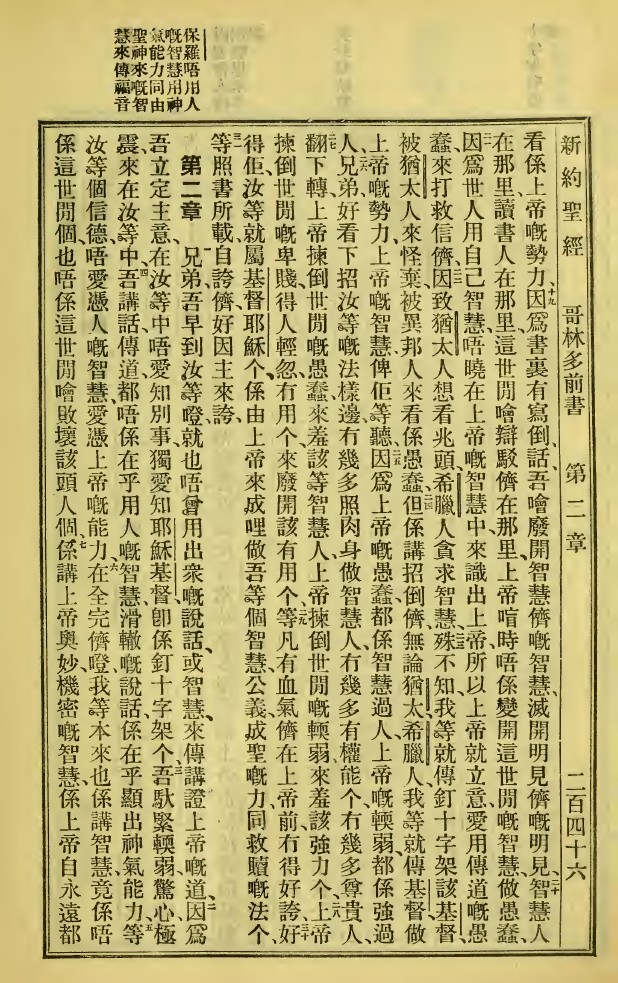 保羅唔用人
嘅智慧用神
氣能力同由
聖神來嘅智
慧來傳福音
新約聖經 哥林多前書 第二章 二百四十六
看係上帝嘅勢力、十九因爲書裏有寫倒、話、吾噲廢開智慧儕嘅智慧、滅開明見儕嘅明見、二十智慧人
在那里、讀書人在那里、這世間噲辯駁儕在那里、上帝唔時唔係變開這世間嘅智慧做愚蠢、
二一因爲世人用自己智慧、唔曉在上帝嘅智慧中來識出上帝、所以上帝就立意愛用傳道嘅愚
蠢、來打救信儕、二二因致猶太人想看兆頭、希臘人貪求智慧、二三殊不知我等就傳釘十字架該基督、
被猶太人來怪棄、被異邦人來看係愚蠢、二四但係講招倒儕、無論猶太、希臘人、我等就傳基督做
上帝嘅勢力、上帝嘅智慧、俾佢等聽、二五因爲上帝嘅愚蠢、都係智慧過人、上帝嘅輭弱、都係強過
人、二六兄弟、好看下招汝等嘅法樣、邊有幾多照肉身做智慧人、冇幾多有權能个、冇幾多尊貴人、
二七翻下轉、上帝揀倒世間嘅愚蠢、來羞該等智慧人、上帝揀倒世間嘅輭弱、來羞該強力个、二八上帝
揀倒世間嘅卑賤、得人輕忽、冇用个、來廢開該有用个、二九等凡有血氣儕、在上帝前、冇得好誇、三十好
得佢、汝等就屬基督耶穌个、係由上帝來成哩做吾等個智慧、公義、成聖嘅力、同救贖嘅法个、
三一等照書所載、自誇儕、好因主來誇、
第二章 一兄弟、吾早到汝等嗱、就也唔曾用出衆嘅說話、或智慧、來傳講證上帝嘅道、二因爲
吾立定主意、在汝等中、唔愛知別事、獨愛知耶穌基督、卽係釘十字架个、三吾馱緊輭弱、驚心、極
震、來在汝等中、四吾講話、傳道、都唔係在乎用人嘅智慧滑轍嘅說話、係在乎顯出神氣能力、五等
汝等個信德、唔愛憑人嘅智慧、愛憑上帝嘅能力、六在全完儕嗱、我等本來也係講智慧、竟係唔
係這世間個、也唔係這世間噲敗壞該頭人個、七係講上帝奧妙、機密嘅智慧、係上帝自永遠都